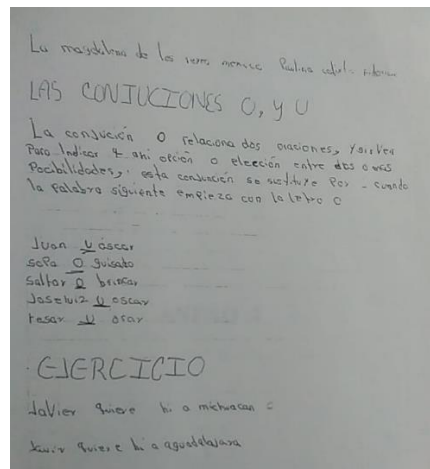 La magdalena de los
LAS CONJUCIONES O, y U
La conjución O relaciona dos oraciones, y sirven
Para Indicar q ahi opción o elección entre dos o más
Pocibilidades, esta conjunción se sustituye Por - cuando
la Palabra siguiente empieza con la letra O
Juan U oscar
sopa O guisado
Saltar O brincar
Joseluiz U oscar
resar U orar
EJERCICIO
Javier quiere hi a michuacan =
Javir quiere hi a aguadalajara